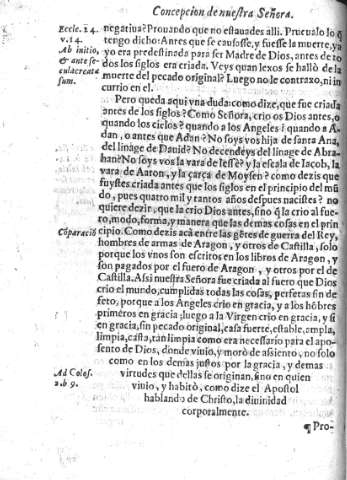 Concepcion de nuestra Señora.
Eccle. 24.
v. 14.
Ab initio,
& ante se-
cula creata
sum.
negatiua? Prouando que no estauades alli. Prueualo lo q̃
tengo dicho: Antes que se causasse, y fuesse la muerte, ya
yo era predestinada para ser Madre de Dios, antes de to
dos los siglos era criada. Veys quan lexos se hallò de la
muerte del pecado original? Luego no le contraxo, ni in
currio en el.
Pero queda aqui vna duda: como dize, que fue criada
antes de los siglos? Como Señora, crio os Dios antes, o
quando los cielos? quando a los Angeles? quando a A-
dan, o antes que Adan? No soys vos hija de santa Ana,
del linage de Dauid? No decendeys del linage de Abra-
han? No soys vos la vara de Iesse? y la escala de Iacob, la
vara de Aaron, y la çarça de Moysen? como dezis que
fuystes criada antes que los siglos en el principio del mũ
do, pues quatro mil y tantos años despues nacistes? no
quiere dezir, que la crio Dios antes, sino q̃ la crio al fue-
ro, modo, forma, y manera que las demas cosas en el prin
Cõparaciõ
cipio. Como dezis acà entre las gẽtes de guerra del Rey,
hombres de armas de Aragon, y otros de Castilla, solo
porque los vnos son escritos en los libros de Aragon, y
son pagados por el fuero de Aragon, y otros por el de
Castilla. Assi nuestra Señora fue criada al fuero que Dios
crio el mundo, cumplidas todas las cosas, perfetas sin de
feto, porque a los Angeles crio en gracia, y a los hõbres
primeros en gracia: luego a la Virgen crio en gracia, y si
en gracia, sin pecado original, casa fuerte, estable, ampla,
limpia, casta, tan limpia como era necessario para el apo-
sento de Dios, donde viuio, y morò de assiento, no solo
como en los demas justos por la gracia, y demas
Ad Colos.
2. b 9.
virtudes que dellas se originan, sino en quien
viuio, y habitò, como dize el Apostol
hablando de Christo, la diuinidad
corporalmente.
¶ Pro-